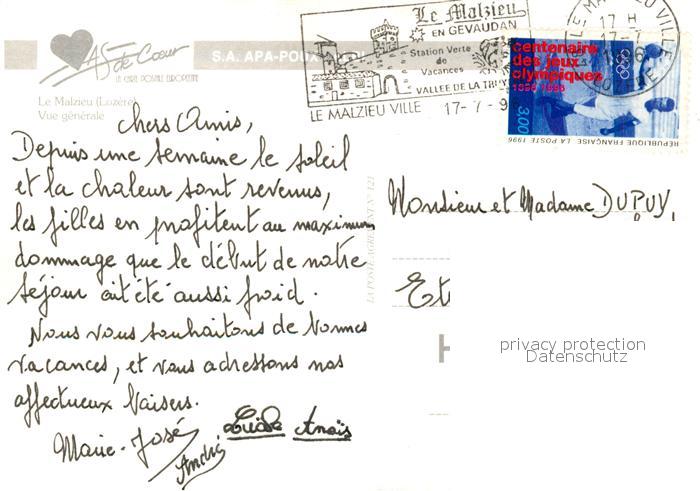 AS de Coeur
LA CARTE POSTALE EUROPEENNE
S.A. APA-POUX
Le Malzieu (Lozère)
Vue générale
Le Malzieu
EN GEVAUDAN
Station Verte
de
Vacances
VALLEE DE LA
LE MALZIEU VILLE 17-7-9
LE MALZIEU VILLE
17 H
17-7
LOZERE
centenaire
des jeux
olympiques
1896 1996
3,00
RÉPUBLIQUE FRANÇAISE LA POSTE 1996
Chers Amis,
Depuis une semaine le soleil
et la chaleur sont revenus,
les filles en profitent au maximum
dommage que le début de notre
séjour ait été aussi froid.
Nous vous souhaitons de bonnes
vacances, et vous adressons nos
affectueux baisers.
Marie-José
André
Lucile Anaïs
LA POSTE AGREMENT N° 121
Monsieur et Madame DUPUY,
Et
H
privacy protection
Datenschutz